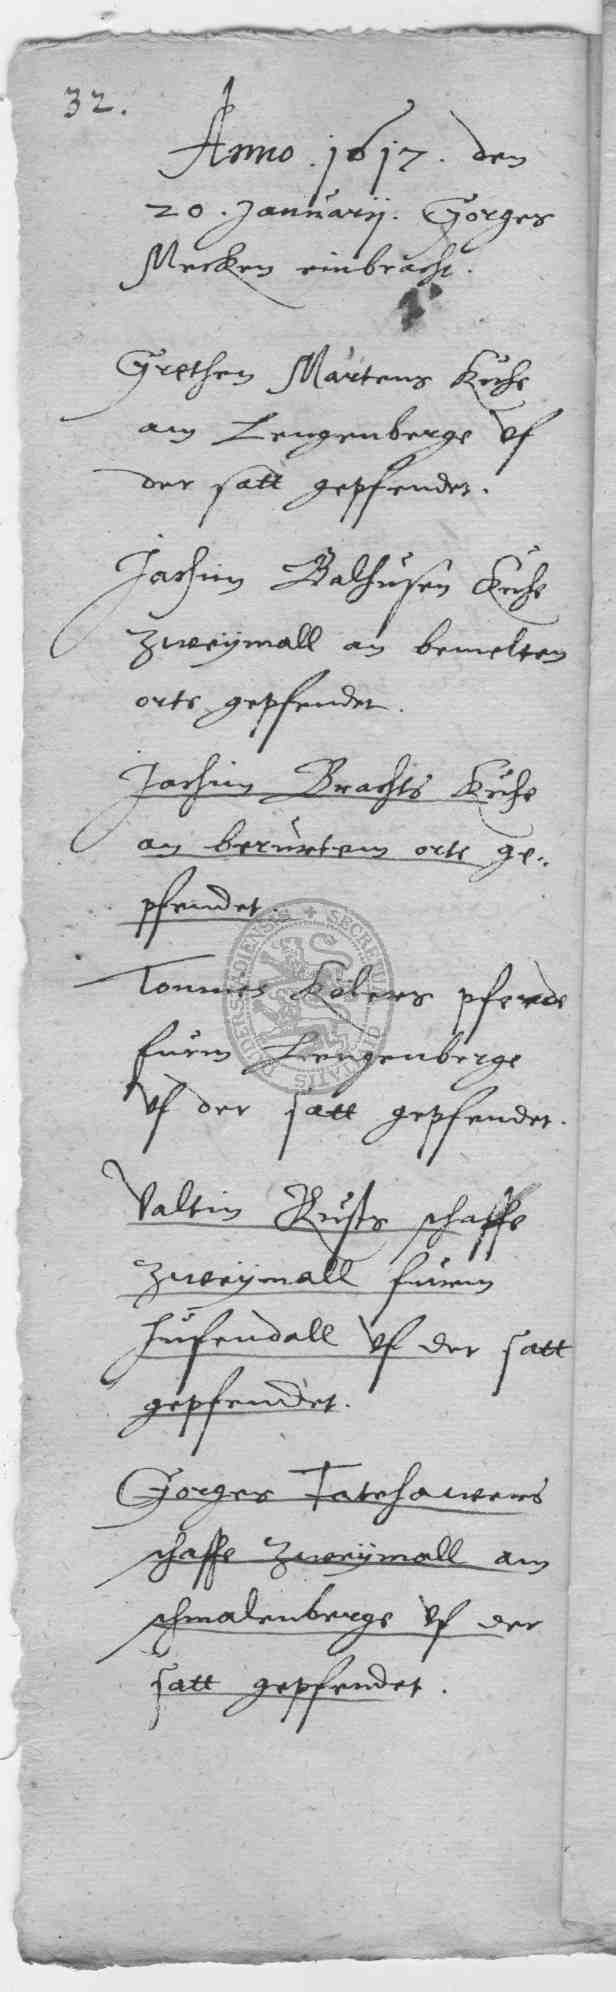 32.
Anno . 1617 . den
20 . Januarij . Gorges
Mecken einbracht .
Grethen Martens Kuhe
am Lengenberge vf
der satt gepfendet .
Jachim Balhusen Kuhe
zweymall an bemelten
orts gepfendet .
Jachim Brachts Kuhe
an berurtem orte ge¬
pfendet
Tonnies Kolers pferde
furm Lengenberge
vf der satt gepfendet .
Valtin Rusts schaffe
zweymall furm
Hufendall vf der satt
gepfendet .
Gorges Tatehawers
schaffe zweymall am
schmalenberge vf der
satt gepfendet .
SECRETUM
DUDERSTADIENSIS